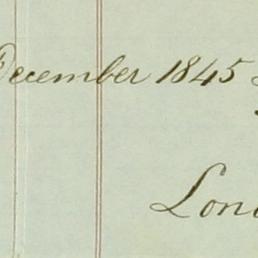 December 1845
Lon